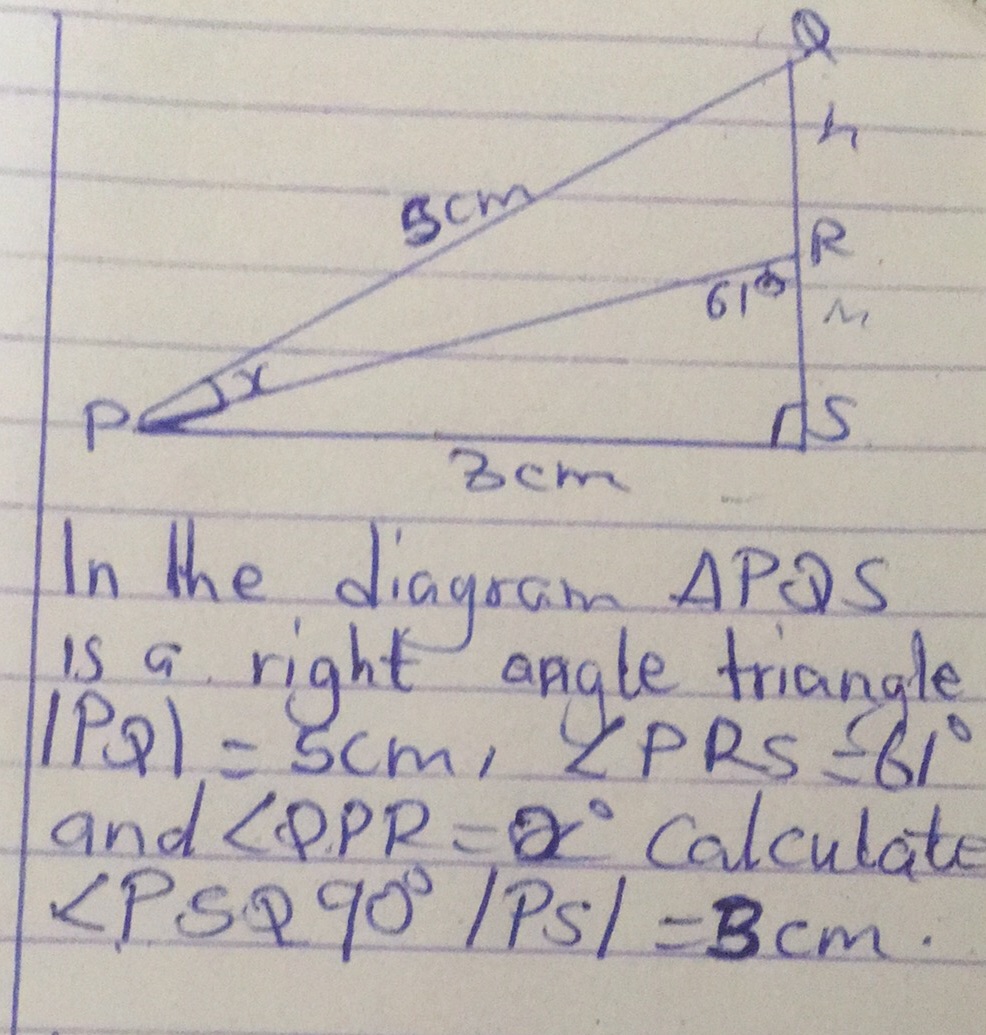 Q
h
5cm
R
61°
m
x
P
S
3cm
In the diagram ΔPQS
is a right angle triangle
|PQ| = 5cm, ∠PRS = 61°
and ∠QPR = x° Calculate
∠PSQ 90° |PS| = 3cm.